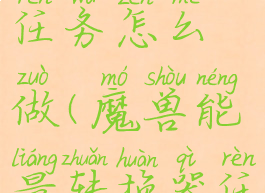 rèn wù zěn me
任务怎么
zuò mó shòu néng
做(魔兽能
liàng zhuǎn huàn qì rèn
量转换器任